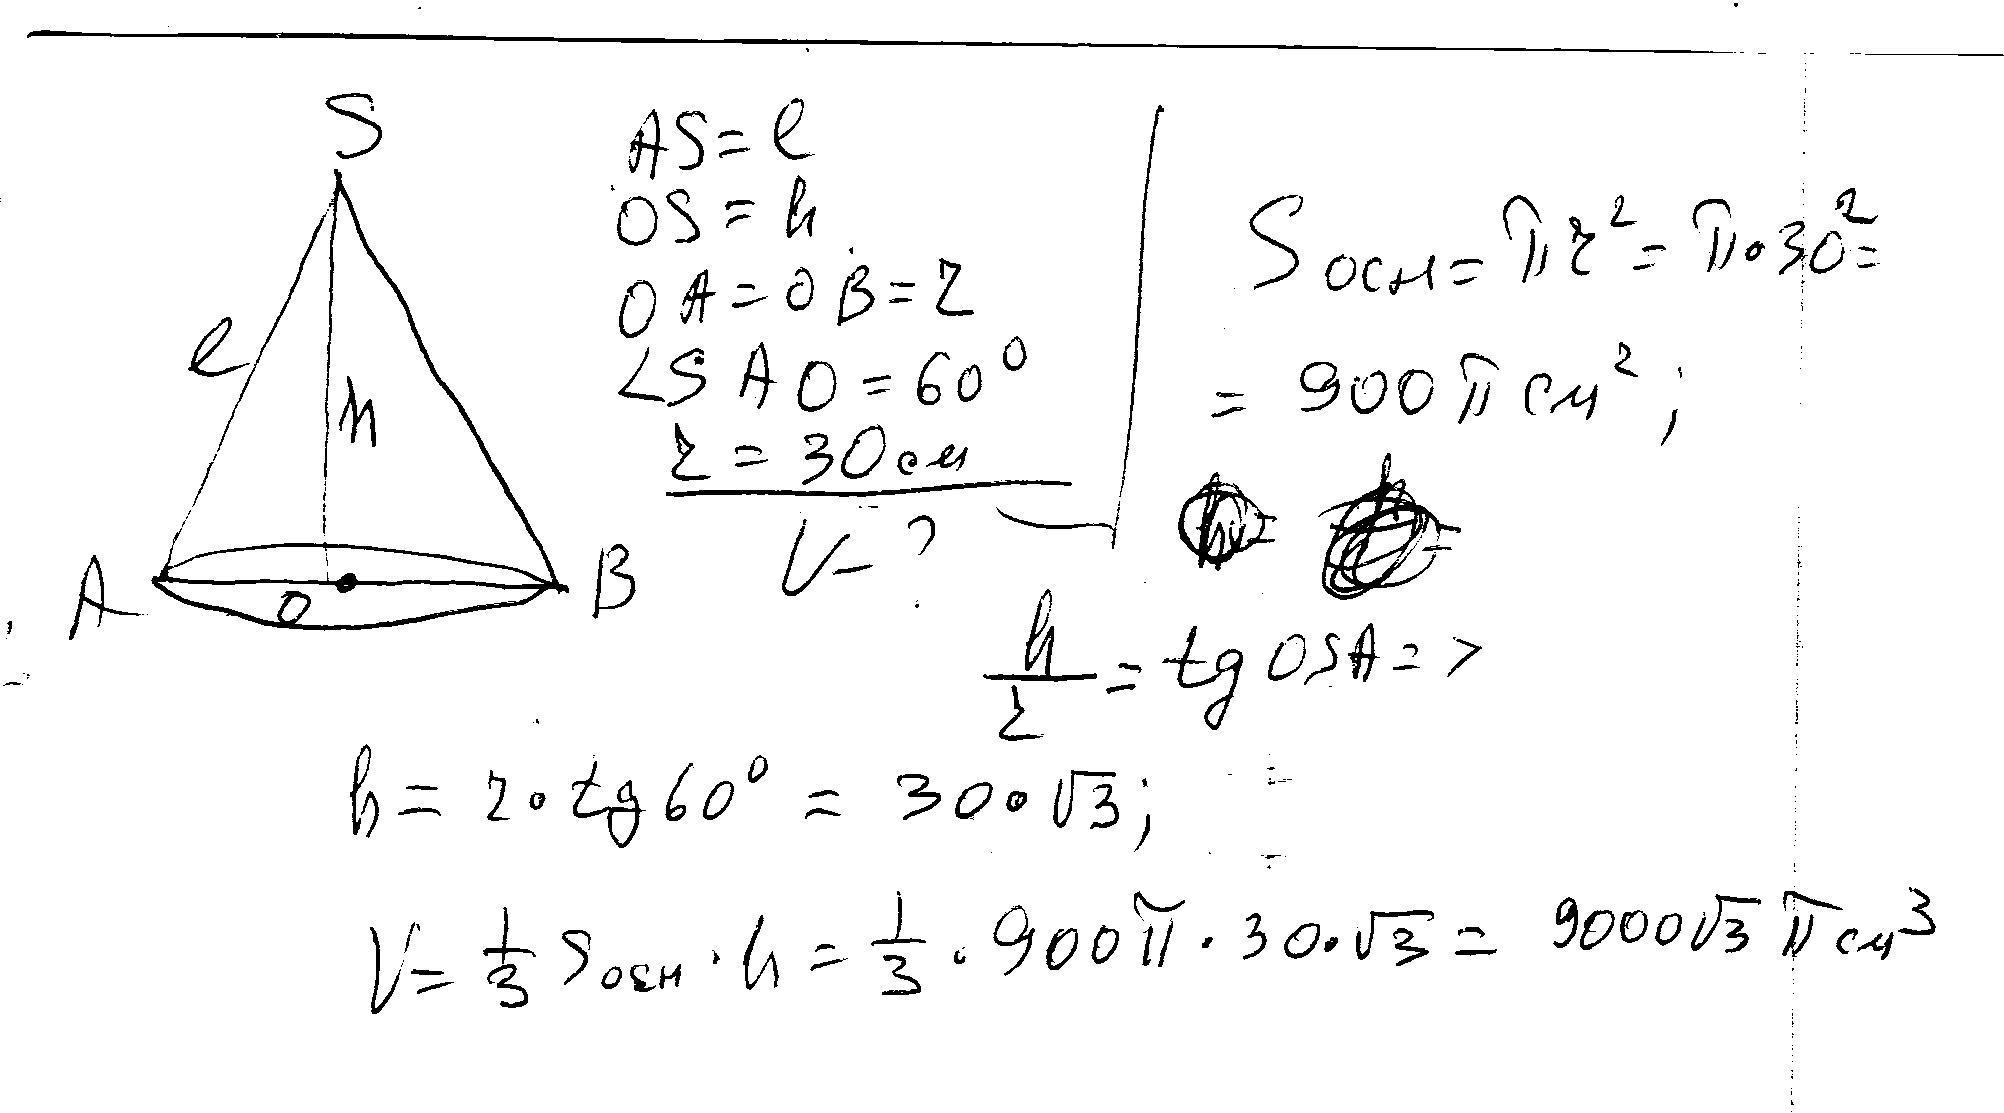 S
AS = l
OS = h
OA = OB = r
∠SAO = 60°
r = 30 см
V - ?
l
h
A
O
B
Sосн = πr² = π·30² =
= 900π см²;
h/r = tg OSA =>
h = r·tg 60° = 30·√3;
V = 1/3 Sосн · h = 1/3 · 900π · 30·√3 = 9000√3 π см³